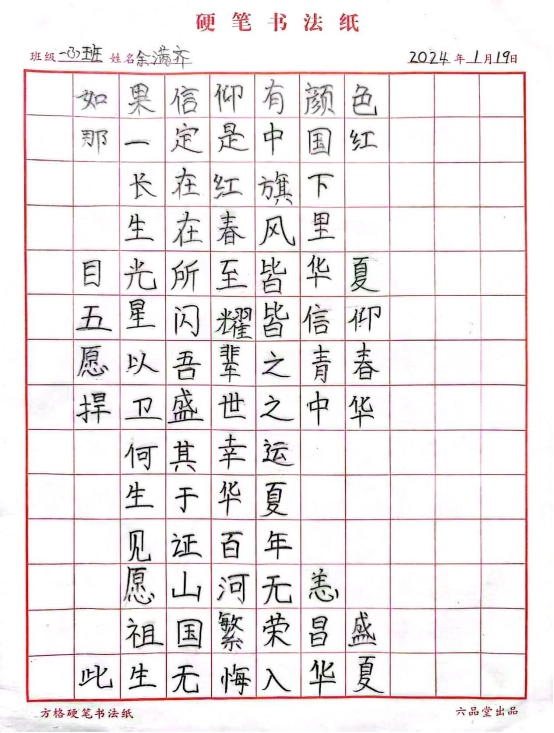 硬笔书法纸
班级 一(3)班 姓名 余满齐 2024年1月19日
如果信仰有颜色
那一定是中国红
长在红旗下
生在春风里
目光所至皆华夏
五星闪耀皆信仰
愿以吾辈之青春
捍卫盛世之中华
何其幸运
生于华夏
见证百年
愿山河无恙
祖国繁荣昌盛
此生无悔入华夏
方格硬笔书法纸 六品堂出品